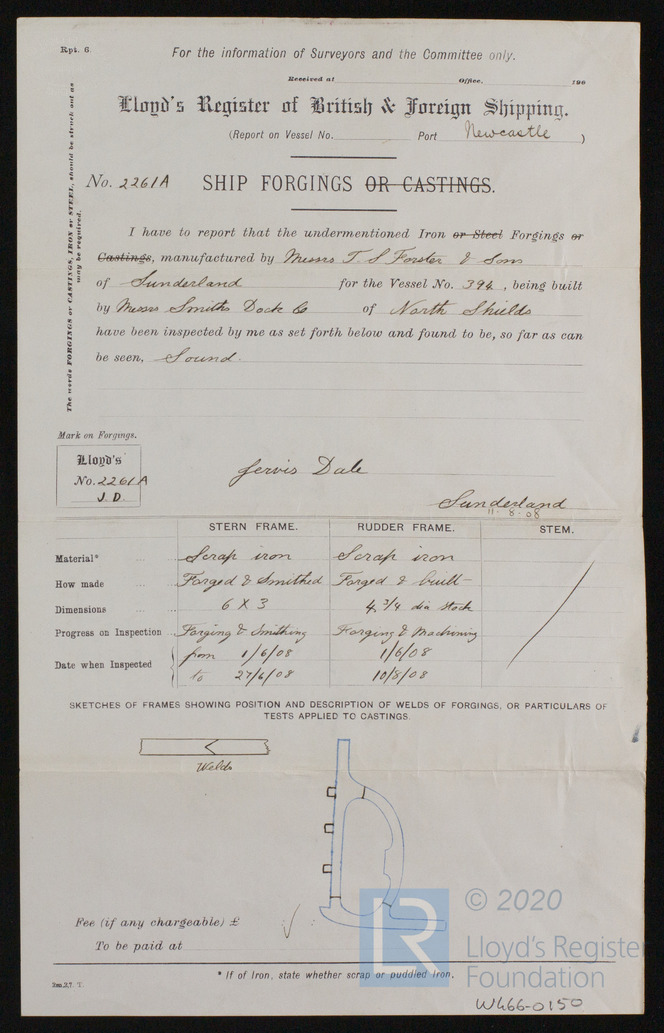 Rpt. 6.
For the information of Surveyors and the Committee only.
Received at Office, 190
Lloyd's Register of British & Foreign Shipping.
(Report on Vessel No. Port Newcastle )
No. 2261A SHIP FORGINGS OR CASTINGS.
The words FORGINGS or CASTINGS, IRON or STEEL, should be struck out as
may be required.
I have to report that the undermentioned Iron or Steel Forgings or
Castings, manufactured by Messrs T. S Forster & Son
of Sunderland for the Vessel No. 394, being built
by Messrs Smiths Dock Co of North Shields
have been inspected by me as set forth below and found to be, so far as can
be seen, Sound.
Mark on Forgings.
Lloyd's
No. 2261A
J. D.
Jervis Dale
Sunderland
11. 8. 08
STERN FRAME. RUDDER FRAME. STEM.
Material* Scrap iron Scrap iron
How made Forged & Smithed Forged & built
Dimensions 6 X 3 4 3/4 dia stock
Progress on Inspection Forging & Smithing Forging & Machining
Date when Inspected { from 1/6/08 1/6/08
to 27/6/08 10/8/08
SKETCHES OF FRAMES SHOWING POSITION AND DESCRIPTION OF WELDS OF FORGINGS, OR PARTICULARS OF
TESTS APPLIED TO CASTINGS.
Welds
Fee (if any chargeable) £
To be paid at
* If of Iron, state whether scrap or puddled iron.
LR
© 2020
Lloyd's Register
Foundation
W466-0150